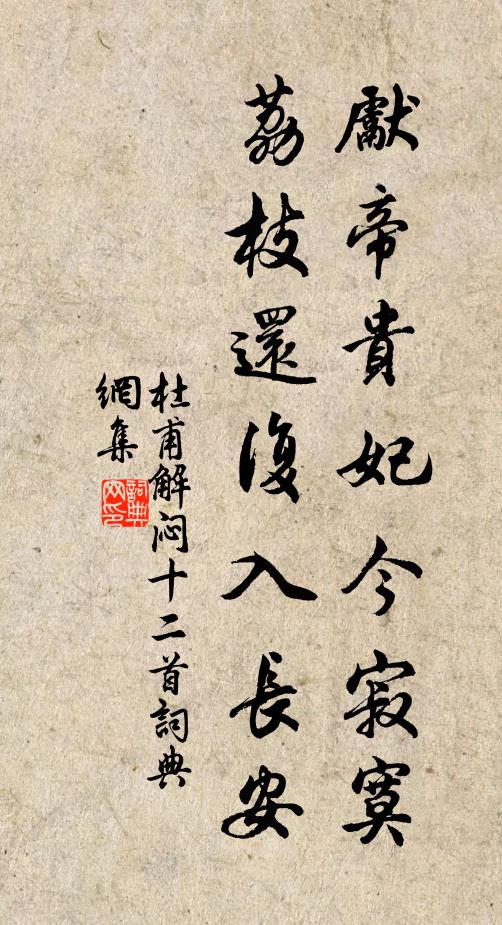 獻帝貴妃今寂寞
荔枝還復入長安
杜甫解闷十二首詞典
網集
詞典
网印